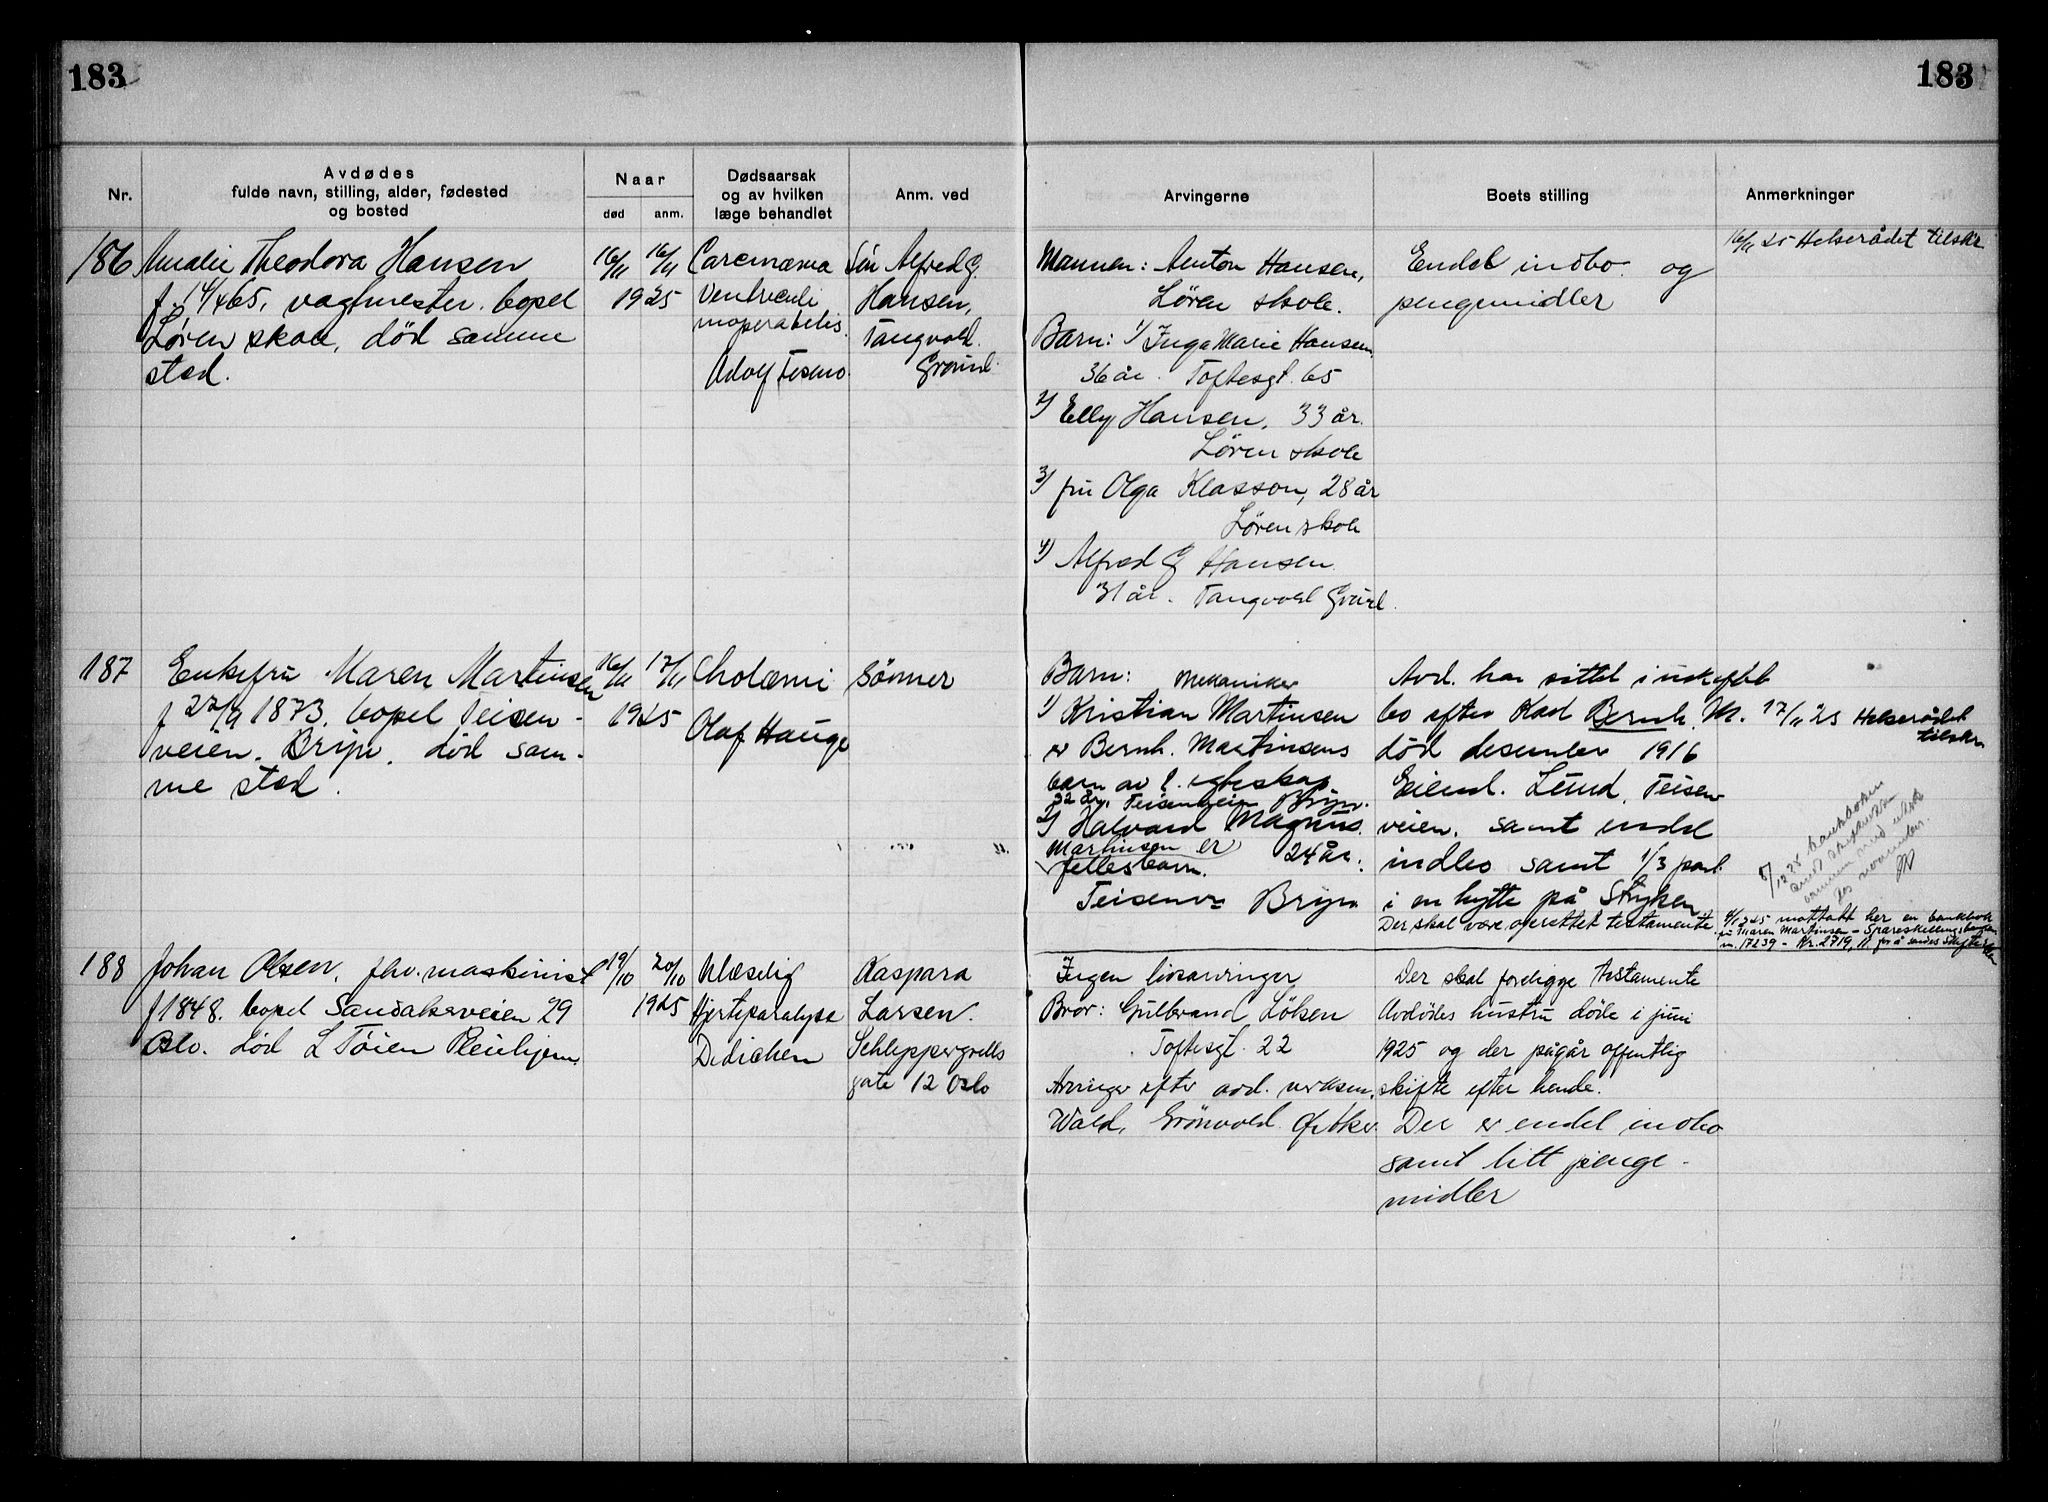 183
183
Nr.
Avdødes
fulde navn, stilling, alder, fødested
og bosted
Naar
død
anm.
Dødsaarsak
og av hvilken
læge behandlet
Anm. ved
Arvingerne
Boets stilling
Anmerkninger
186
Amalie Theodora Hansen
f 14/4 65, vagtmester. bopel
Løren skole, død samme
sted.
16/11
16/11
1925
Carcinoma
Ventriculi
inoperabilis.
Adolf
Søn Alfred G
Hansen,
Tangvold
Grorud
Mannen: Anton Hansen,
Løren skole.
Barn: 1/ Inga Marie Hansen,
36 år. Toftesgt. 65
2/ Elly Hansen, 33 år.
Løren skole
3/ fru Olga Klasson, 28 år
Løren skole
4) Alfred G Hansen
31 år. Tangvold Grorud.
Endel indbo og
pengemidler
16/11 25 Helserådet tilskr
187
Enkefru Maren Martinsen
f 27/9 1873. bopel Teisen-
veien. Bryn. død sam-
me sted.
16/11
17/11
1925
Cholæmi
Olaf Hauge
Sønner
Barn: Mekaniker
1) Kristian Martinsen
er Bernh. Martinsens
barn av 1. egteskap
32 år, Teisenveien Bryn.
2) Halvard Magnus
Martinsen er 24 år.
fellesbarn.
Teisenv. Bryn
Avd. har sittet i uskiftet
bo efter Mad Bernh. M.
død desember 1916
Eiend. Lund, Teisen
veien. samt endel
indbo samt 1/3 part
i en hytte på Stryken
Der skal være oprettet testamente.
17/11 25 Helserådet
tilskr
8/12 25 bankboken
sendt skifteretten
sammen med
for november.
mottatt her en bankbok
Maren Martinsen - Spareskillingsbanken
nr. 17239 - Kr. 2719, 11 for å sendes skifteretten
188
Johan Olsen, fhv. maskinist
f 1848. bopel Sandakerveien 29
Oslo. død L Tøien Pleiehjem.
19/10
20/10
1925
Ulæselig
Hjerteparalyse
Dedichen
Kaspara
Larsen.
Schleppergrells
gate 12 Oslo
Ingen livsarvinger
Bror: Gulbrand Løken
Toftesgt. 22
Arvinger efter avd.
Wald, Grönvold. Ø. Aker.
Der skal foreligge testamente
Avdødes hustru døde i juni
1925 og der pågår offentlig
skifte efter hende.
Der er endel indbo
samt litt penge-
midler